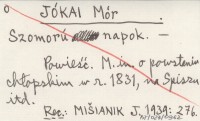 o
JÓKAI Mór.
Szomorú napok. —
Powieść. M. in. o powstaniu
chłopskim w r. 1831, na Spiszu
itd.
Rec.: MIŠIANIK J., 1939: 276.